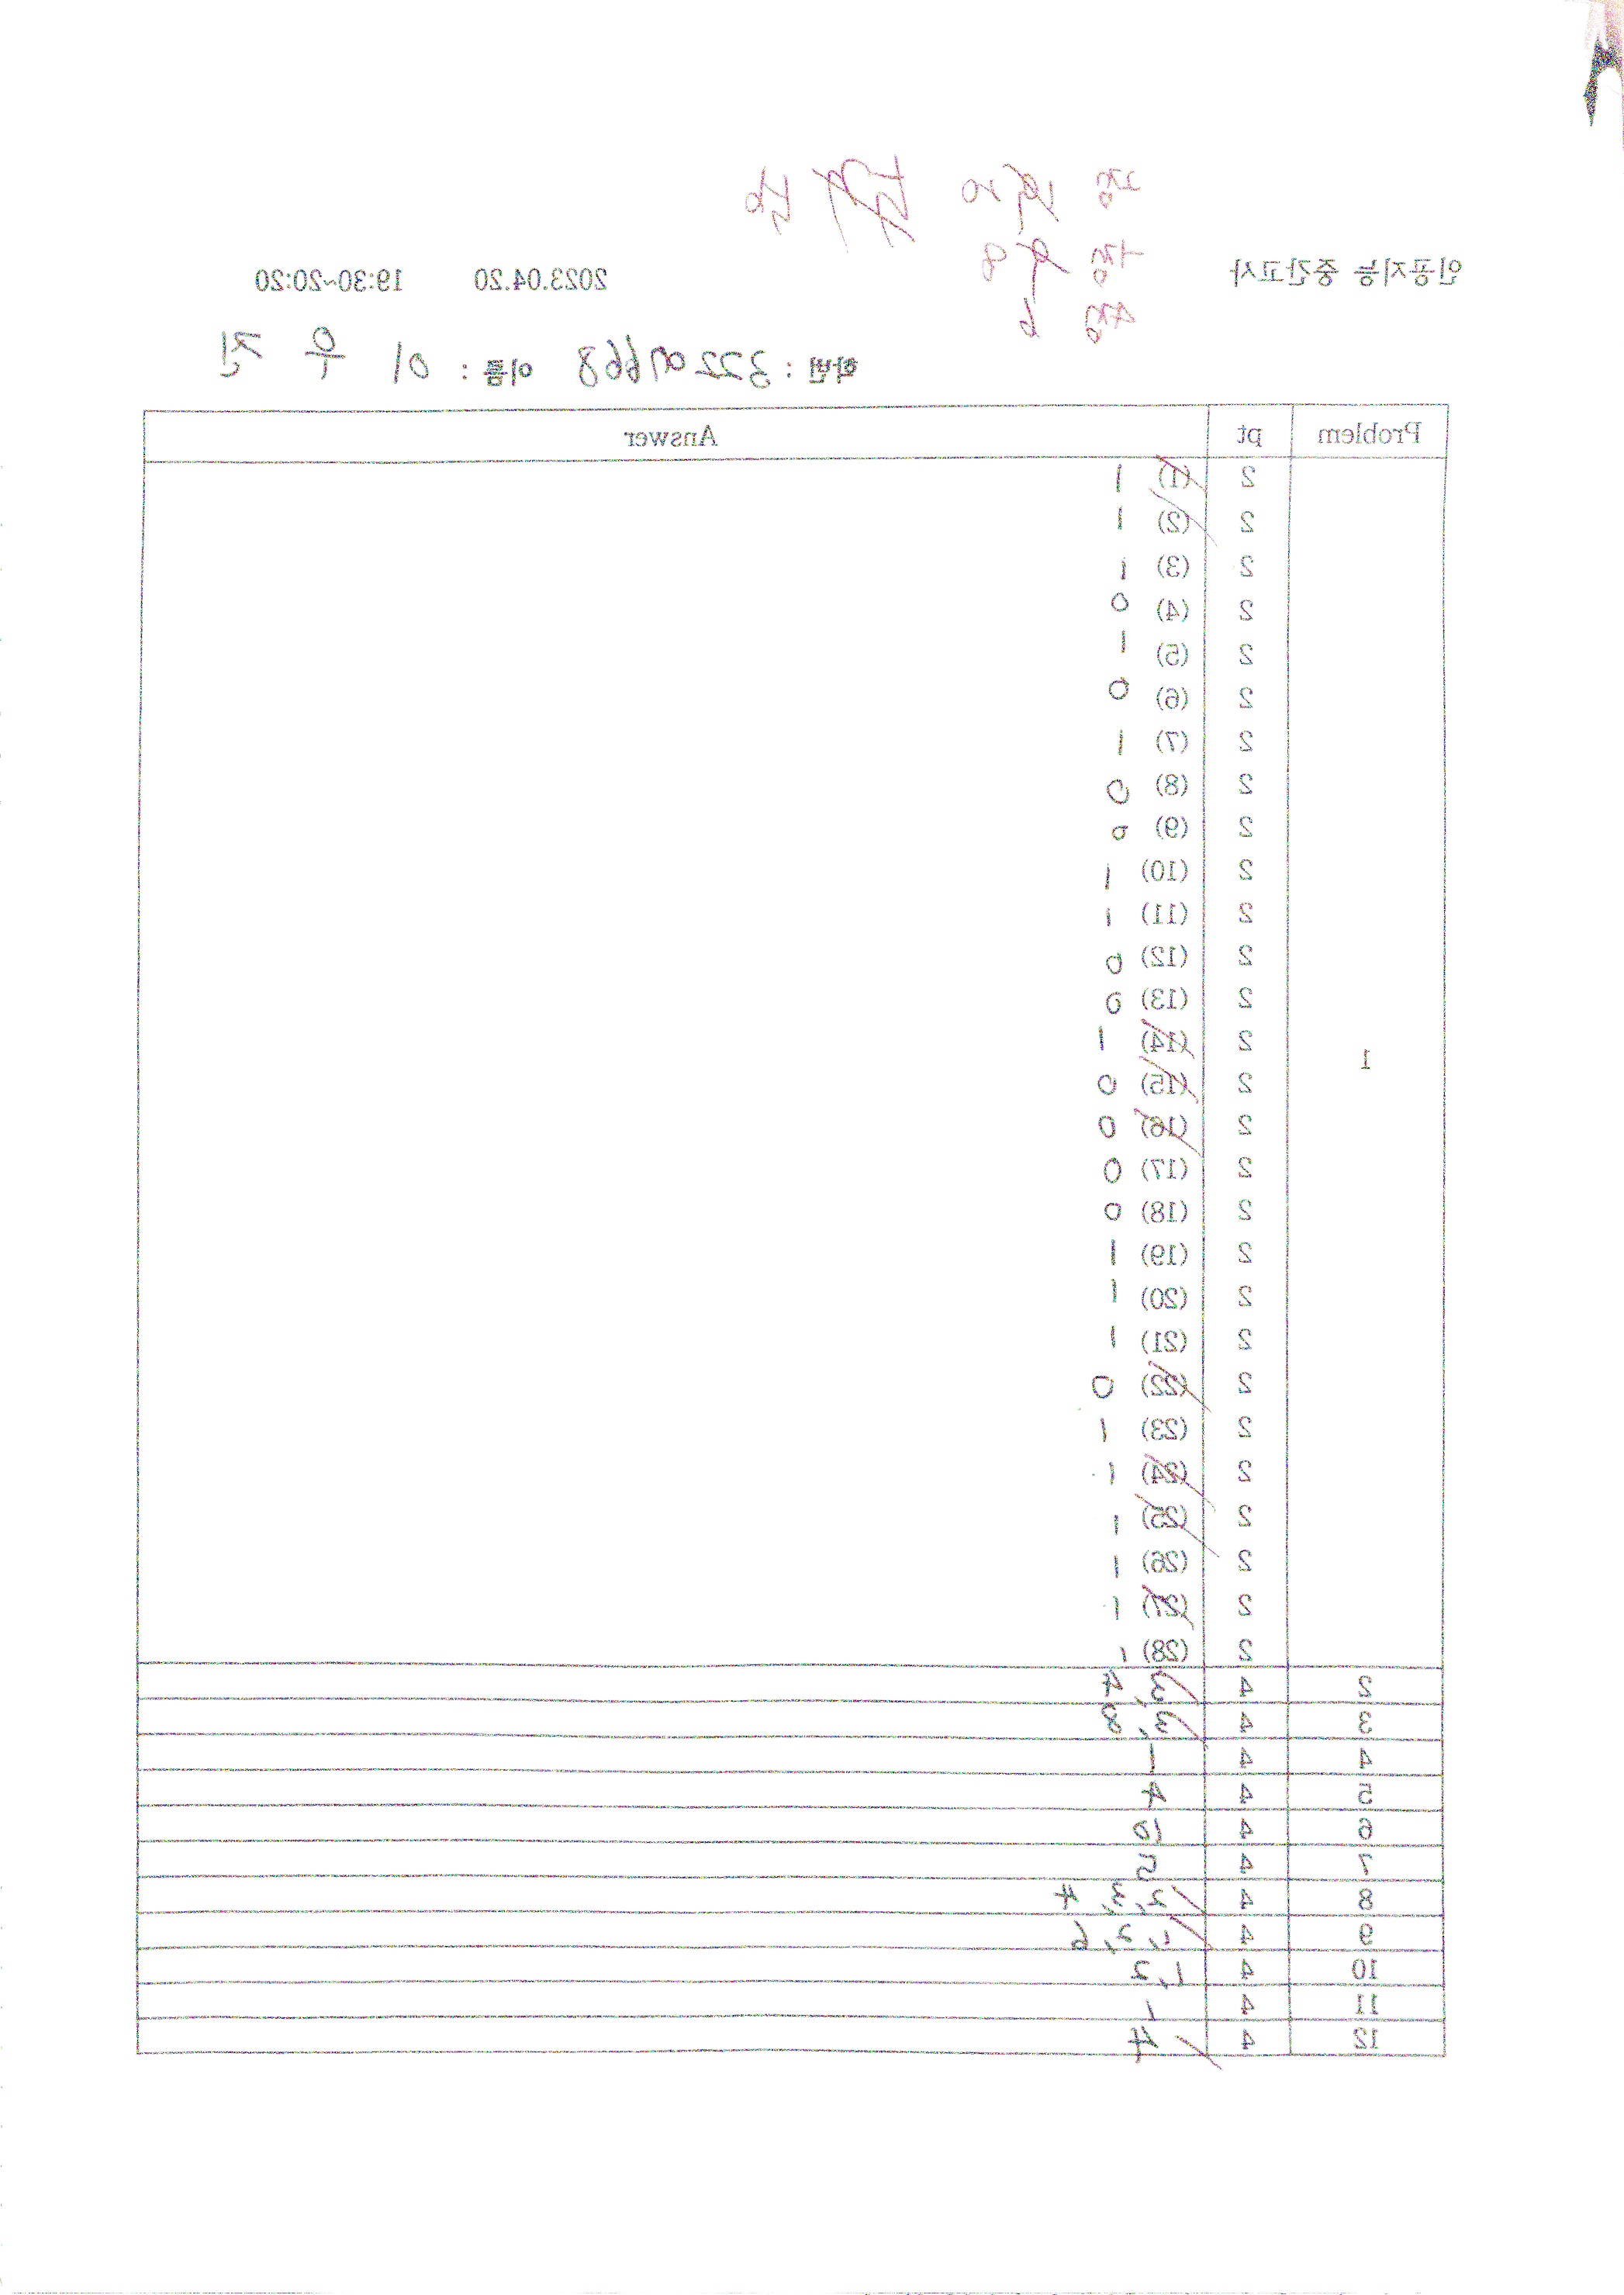 인공지능 중간고사 2023.04.20 19:30~20:20
학번 : 이름 : 이 우 진
Problem pt Answer
1
2 (1) 1
2 (2) 1
2 (3) 1
2 (4) 0
2 (5) 1
2 (6) 0
2 (7) 1
2 (8) 0
2 (9) 0
2 (10) 1
2 (11) 1
2 (12) 0
2 (13) 0
2 (14) 1
2 (15) 0
2 (16) 0
2 (17) 0
2 (18) 0
2 (19) 1
2 (20) 1
2 (21) 1
2 (22) 0
2 (23) 1
2 (24) 1
2 (25) 1
2 (26) 1
2 (27) 1
2 (28) 1
2 4 3, 4
3 4 3, 8
4 4 1
5 4 4
6 4 10
7 4 5
8 4 2, 3, 4
9 4 1, 2, 6
10 4 1, 2
11 4 1
12 4 4